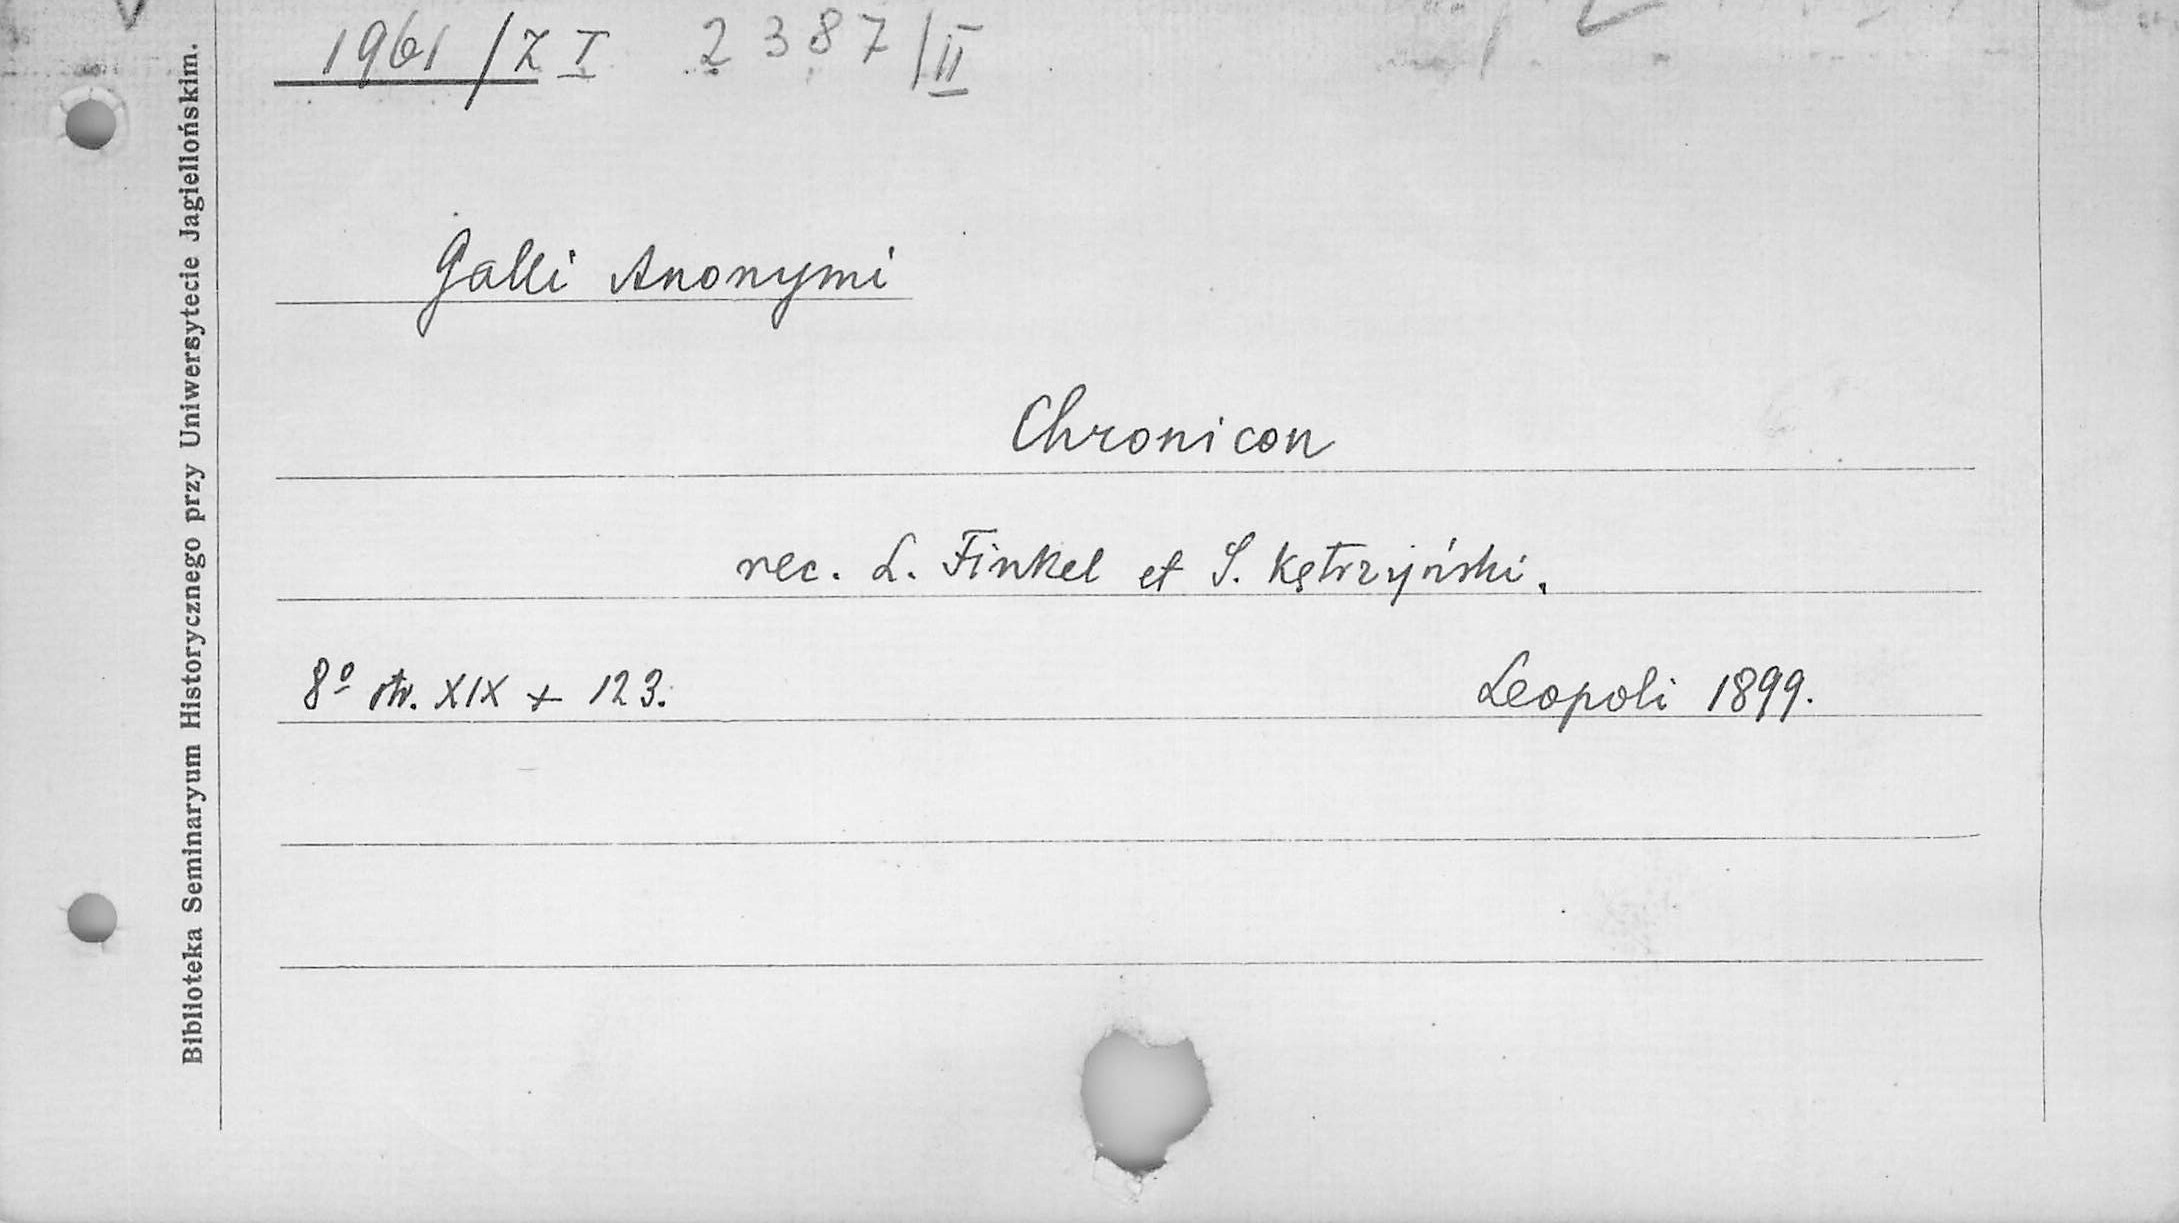 1961 / Z I 2387/II
Galli Anonymi
Chronicon
rec. L. Finkel et S. Kętrzyński.
8º str. XIX + 123.
Leopoli 1899.
Biblioteka Seminaryum Historycznego przy Uniwersytecie Jagiellońskim.